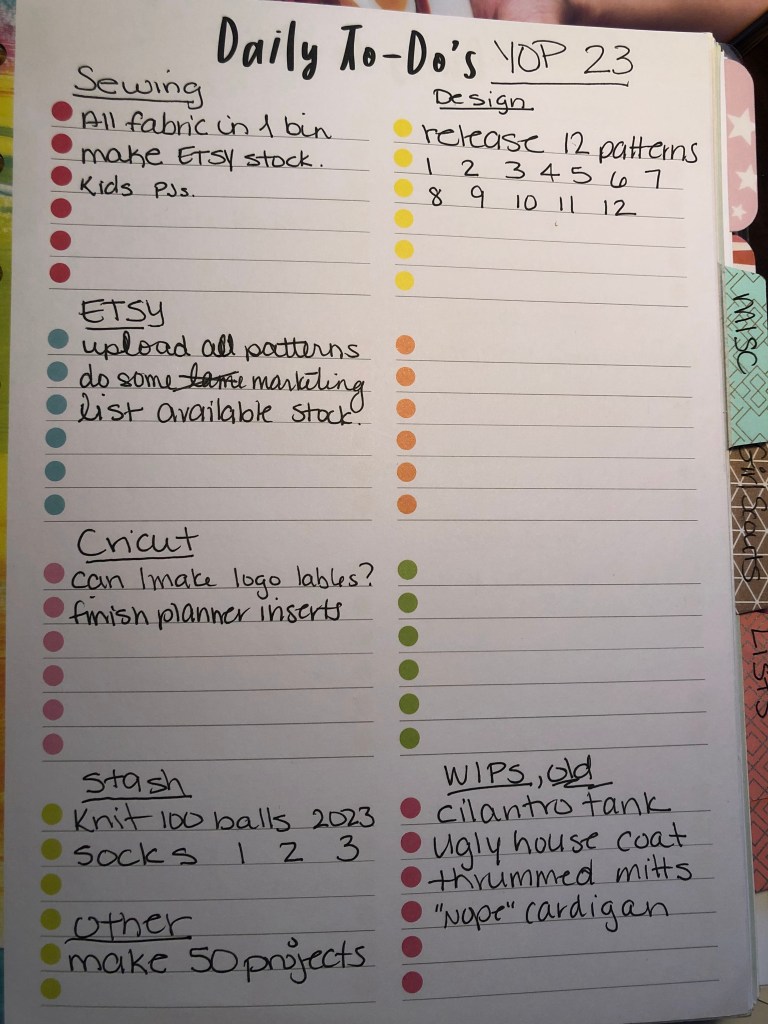 Daily To-Do's YOP 23
Sewing
All fabric in 1 bin
make ETSY stock.
Kids PJs.
Design
release 12 patterns
1 2 3 4 5 6 7
8 9 10 11 12
ETSY
upload all patterns
do some marketing
list available stock.
Cricut
can I make logo lables?
finish planner inserts
Stash
Knit 100 balls 2023
Socks 1 2 3
Other
make 50 projects
WIPS, old
cilantro tank
Ugly house coat
thrummed mitts
"Nope" cardigan
MISC
Girl Scouts
LISTS